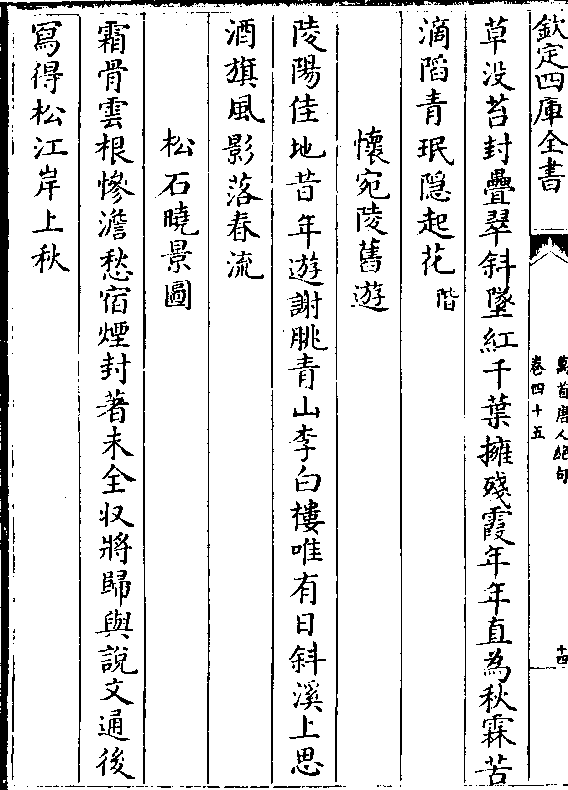 欽定四庫全書
萬首唐人絕句
卷四十五
十四
草没苔封疊翠斜墜紅千葉擁殘霞年年直為秋霖苦
滴䧟青珉隠起花階
懷宛陵舊遊
陵陽佳地昔年遊謝朓青山李白樓唯有日斜溪上思
酒旗風影落春流
松石曉景圖
霜骨雲根慘澹愁宿煙封著未全収將歸與說文通後
寫得松江岸上秋